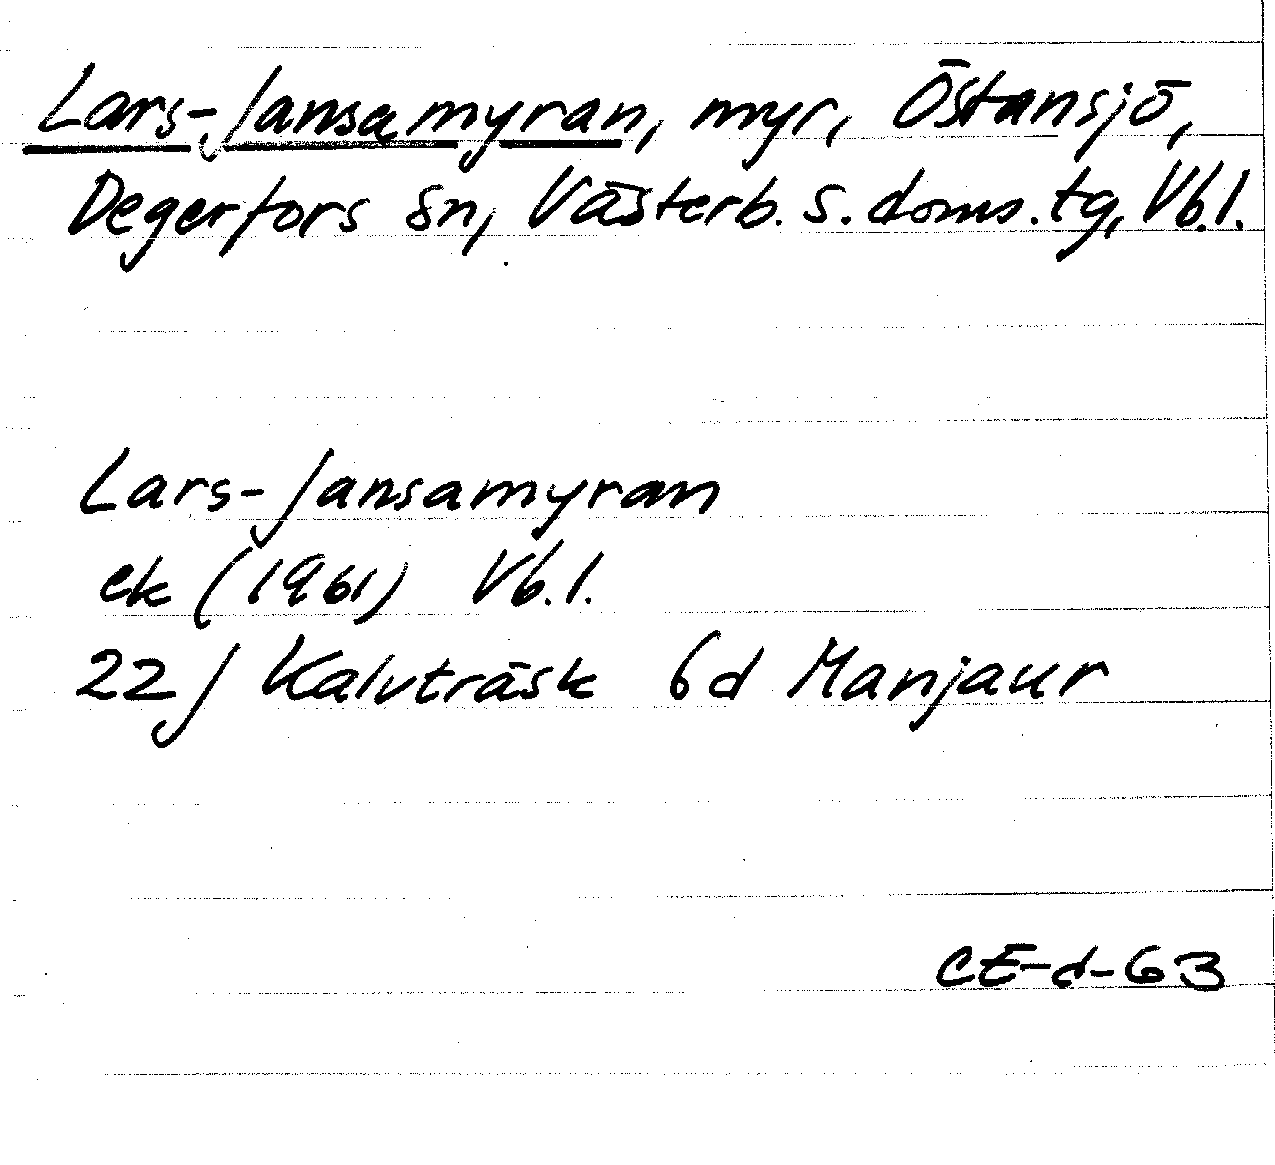 Lars-Jansamyran, myr, Östansjö,
Degerfors sn, Västerb. s. doms. tg, Vb.l.
Lars-Jansamyran
ek (1961) Vb.l.
22J Kalvträsk 6d Manjaur
CE-d-63